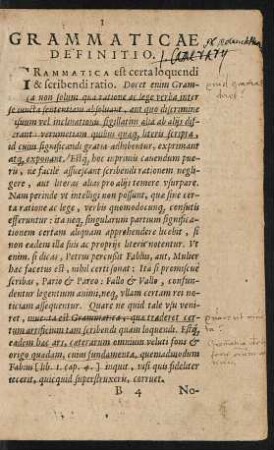 GRAMMATICAE
DEFINITIO.
GRAMMATICA est certa loquendi
& scribendi ratio. Docet enim Gram-
ca non solum qua ratione ac lege verba inter
se juncta sententiam absolvant, aut quo discrimine
casuum vel inclinationis sigillatim alia ab alijs dif-
ferant: verumetiam quibus quæq; literis scripta,
id cum significandi gratia adhibentur, exprimant
atq; exponant. Estq; hoc inprimis cavendum pue-
ris, ne facilè assuescant scribendi rationem negli-
gere, aut literas alias pro alijs temere vsurpare.
Nam perinde vt intelligi non possunt, quæ sine cer-
ta ratione ac lege, verbis quomodocunq; consutis
efferuntur: ita neq; singularum partium significa-
tionem certam aliquam apprehendere licebit, si
non eædem illa suis ac proprijs literis notentur. Vt
enim, si dicas, Petrus percussit Paulus, aut, Mulier
hac factus est, nihil certi sonat: Ita si promiscuè
scribas, Pario & Pareo: Fallo & Vallo, confun-
dentur legentium animi, neq; vllam certam rei no-
titiam assequentur. Quare ne quid tale vsu veni-
ret, inventa est Grammatica, quæ traderet cer-
tum artificium tam scribendi quam loquendi. Estq;
eadem hæc ars, cæterarum omnium veluti fons &
origo quædam, cujus fundamenta, quemadmodum
Fabius [lib. 1. cap. 4.] inquit, nisi quis fideliter
jecerit, quicquid superstruxeris, corruet.
B 4 No-